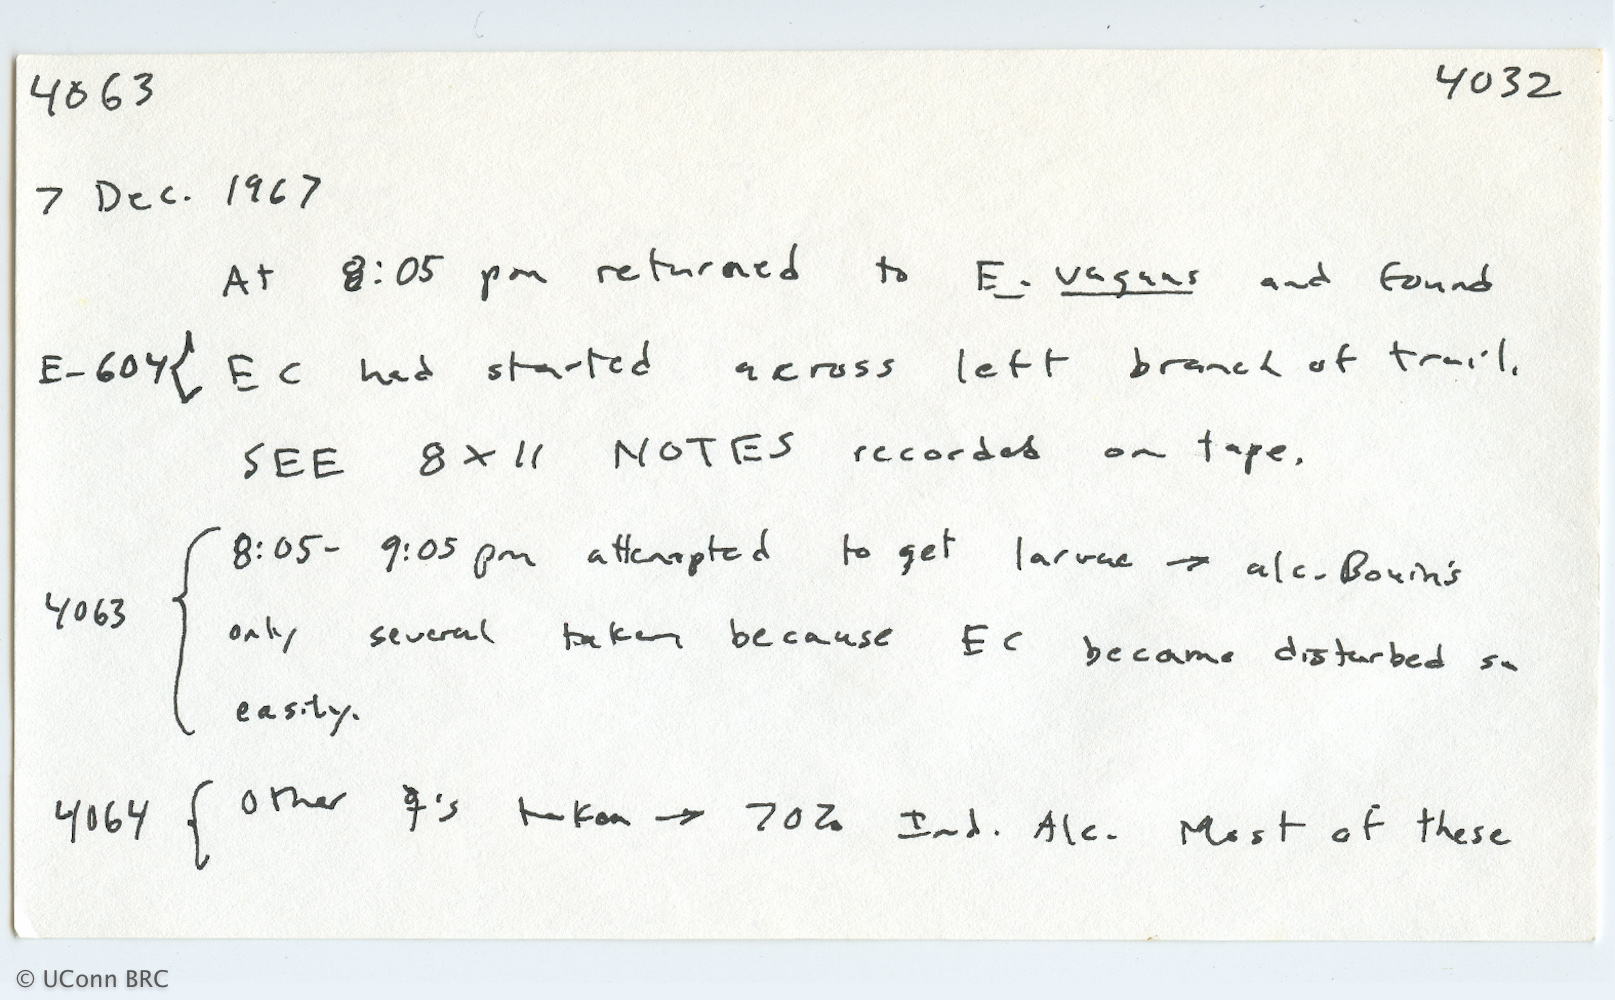 4063 4032
7 Dec. 1967
At 8:05 pm returned to E. vagans and found
E-604 { EC had started across left branch of trail.
SEE 8 x 11 NOTES recorded on tape.
8:05- 9:05 pm attempted to get larvae → alc. Bouin's
4063 { only several taken because EC became disturbed so
easily.
4064 { other ☿'s taken → 70% Ind. Alc. Most of these
© UConn BRC